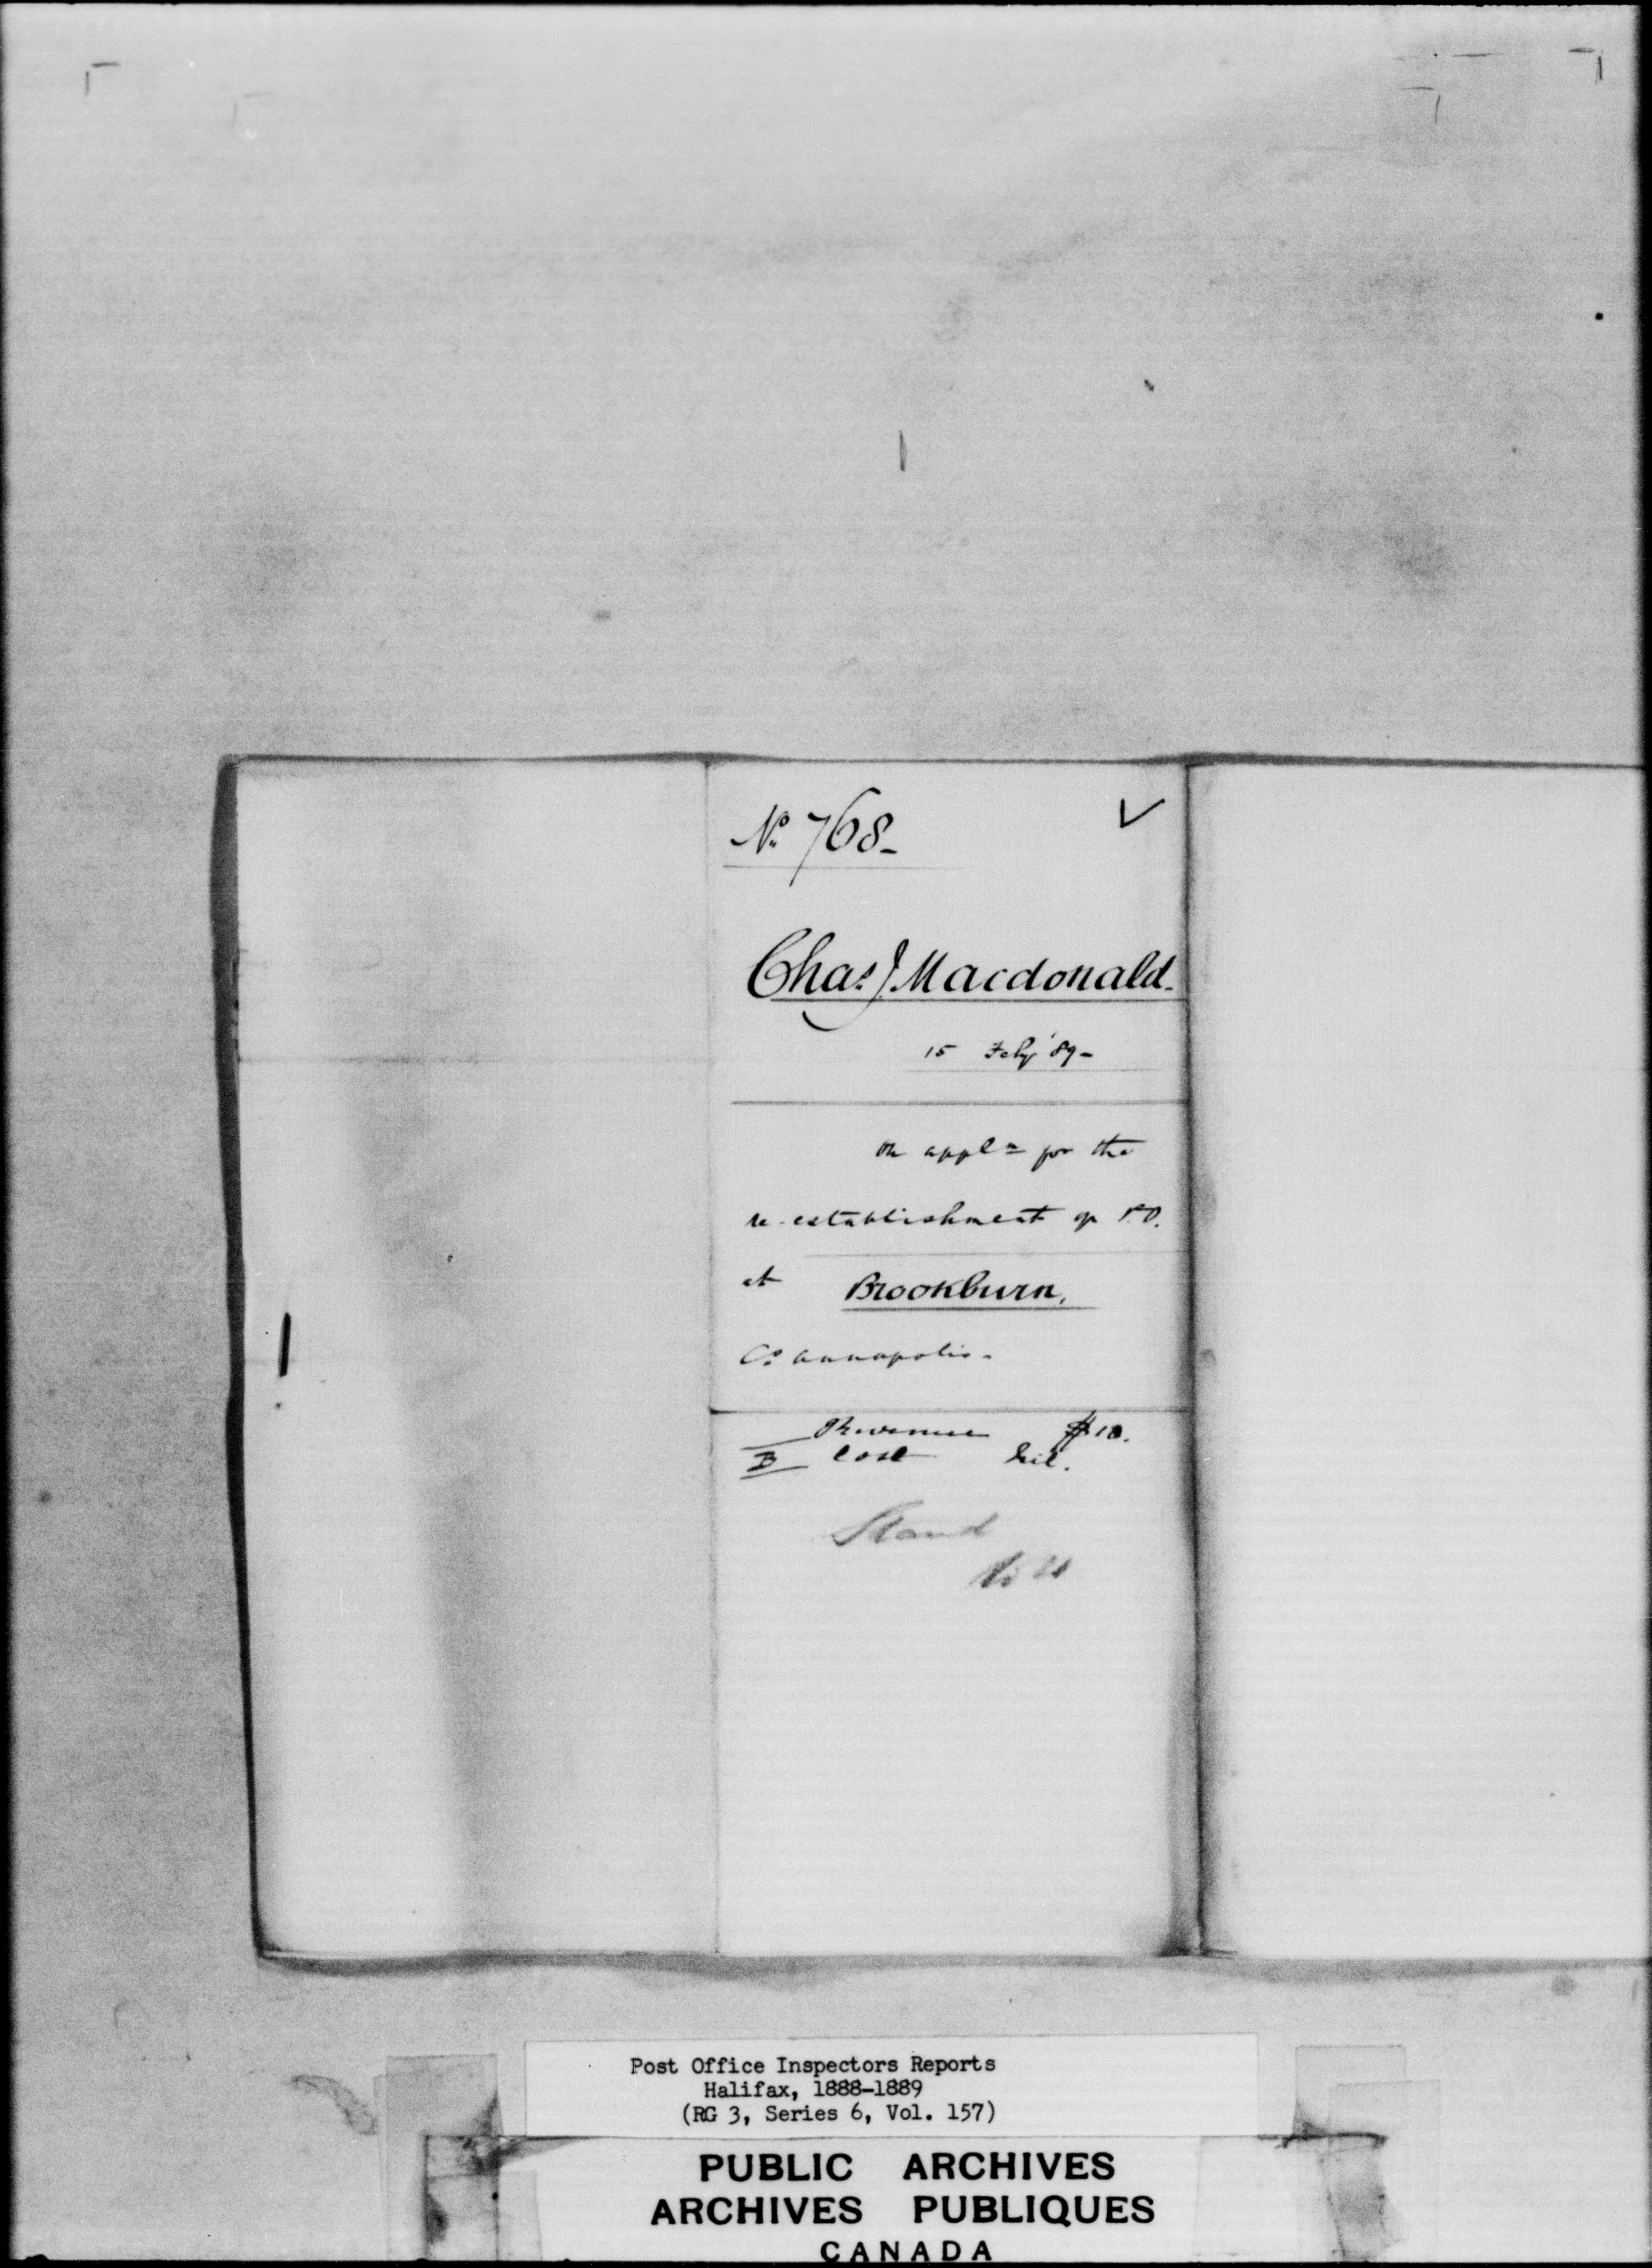 No. 768-
Chas. J. Macdonald.
15 Feby '89-
On appln for the
re-establishment of P.O.
at Brookburn,
Co. Annapolis.
Revenue $10.
B Cost Nil.
Stand
Post Office Inspectors Reports
Halifax, 1888-1889
(RG 3, Series 6, Vol. 157)
PUBLIC ARCHIVES
ARCHIVES PUBLIQUES
CANADA